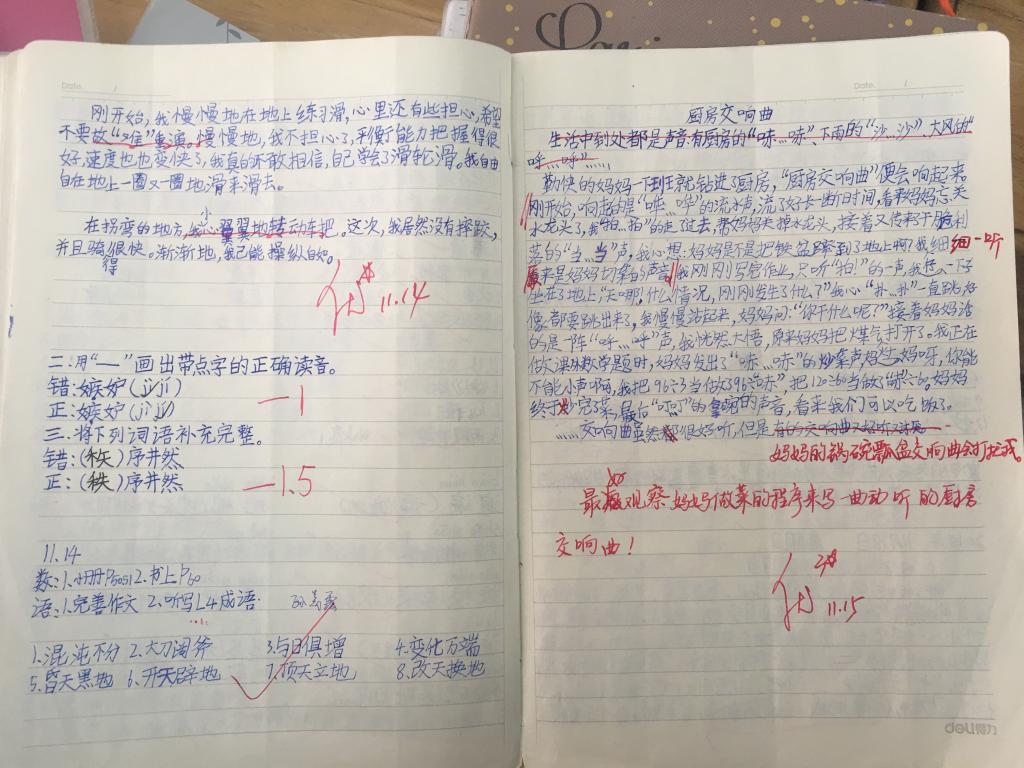 Date. /
刚开始,我慢慢地在地上练习滑,心里还有些担心,希望
不要故“难”重演。慢慢地,我不担心了,平衡能力把握得很
好,速度也也变快了,我真的不敢相信,自己学会了滑轮滑。我自由
自在地上一圈又一圈地滑来滑去。
小
在拐弯的地方,我心翼翼地转动车把。这次,我居然没有摔跤,
并且骑很快。渐渐地,我已能操纵自如。
翼 得
优 11.14
二.用“—”画出带点字的正确读音。
错:嫉妒(jì jí)
正:嫉妒(jí jì)
—1
三.将下列词语补充完整。
错:(秩)序井然
正:(秩)序井然
—1.5
11.14
数:1.小册P50-51 2.书上P60
语:1.完善作文 2.听写L4成语
1.混沌不分 2.大刀阔斧 3.与日俱增 4.变化万端
5.昏天黑地 6.开天辟地 7.顶天立地 8.改天换地
Date. /
厨房交响曲
生活中到处都是声音:有厨房的“哧…哧”、下雨的“沙…沙”、大风的“
呼……呼”……
勤快的妈妈一下班就钻进了厨房,“厨房交响曲”便会响起来。
刚开始,响起的是“哗…哗”的流水声,流了好长一断时间,看来妈妈忘关
水龙头了,我“啪…啪”的走了过去,帮妈妈关掉水龙头,接着又传来了干脆利
落的“当…当”声,我心想:妈妈是不是把铁盆摔到了地上啊?我细细一听
原来是妈妈切菜的声音。我刚刚写完作业,只听“啪!”的一声,我一下子
坐在了地上“天哪!什么情况,刚刚发生了什么?”我心“扑…扑”一直跳好
像都要跳出来了,我慢慢站起来,妈妈问:“你干什么呢?”接着妈妈
的是一阵“呼…呼”声,我恍然大悟,原来妈妈把煤气打开了。我正在
做课外数学题时,妈妈发出了“哧…哧”的炒菜声,妈妈呀,你能
不能小声啊,我把96÷3当做396“哧”把120÷60当做,妈妈
终于炒完了菜,最后“”的声音,看来我们可以吃饭了。
……交响曲虽然都很好听,但是有的交响曲
妈妈的锅碗瓢盆交响曲会打扰我。
最好观察妈妈做菜的程序来写一曲动听的厨房
交响曲!
优 11.15
deli得力